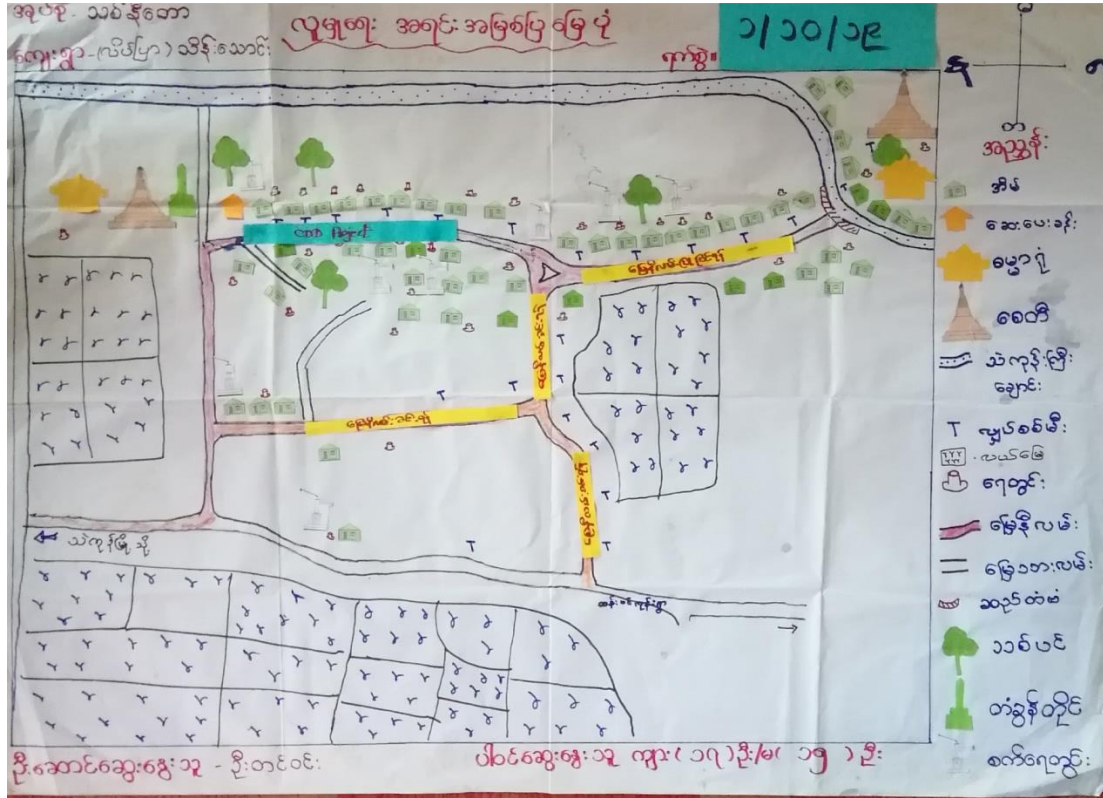 အုပ်စု - သစ်နီတော
လူမှုရေး အရင်းအမြစ်ပြ မြေပုံ
ကျေးရွာ - (လိပ်ပြာ) သိန်းသောင်း
ရက်စွဲ။
၁/၁၀/၁၉
တ
အညွှန်း
အိမ်
ဆေးပေးခန်း
ဓမ္မာရုံ
စေတီ
သဲကုန်းကြီး
ချောင်း
T လျှပ်စစ်မီး
လယ်မြေ
ရေတွင်း
မြေနီလမ်း
မြေသားလမ်း
ဆည်တံမံ
သစ်ပင်
တံခွန်တိုင်
စက်ရေတွင်း
သဲကုန်းမြို့သို့
ဦးဆောင်ဆွေးနွေးသူ - ဦးတင်ဝင်း
ပါဝင်ဆွေးနွေးသူ ကျား (၁၇) ဦး/မ (၁၅) ဦး